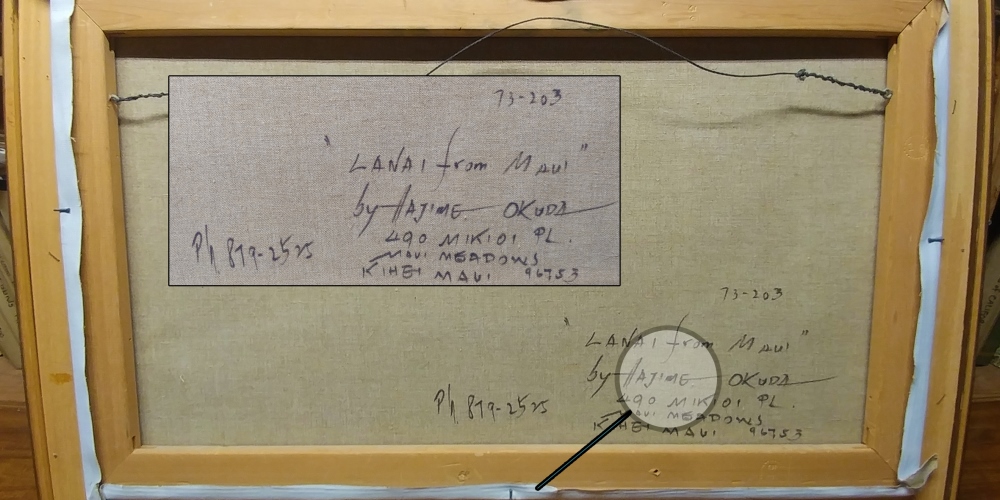 73-203
" LANAI from MAUI "
by HAJIME OKUDA
490 MIKIOI PL.
MAUI MEADOWS
KIHEI MAUI 96753
Ph 879-2525
73-203
" LANAI from MAUI "
by HAJIME OKUDA
490 MIKIOI PL.
MAUI MEADOWS
KIHEI MAUI 96753
Ph 879-2525